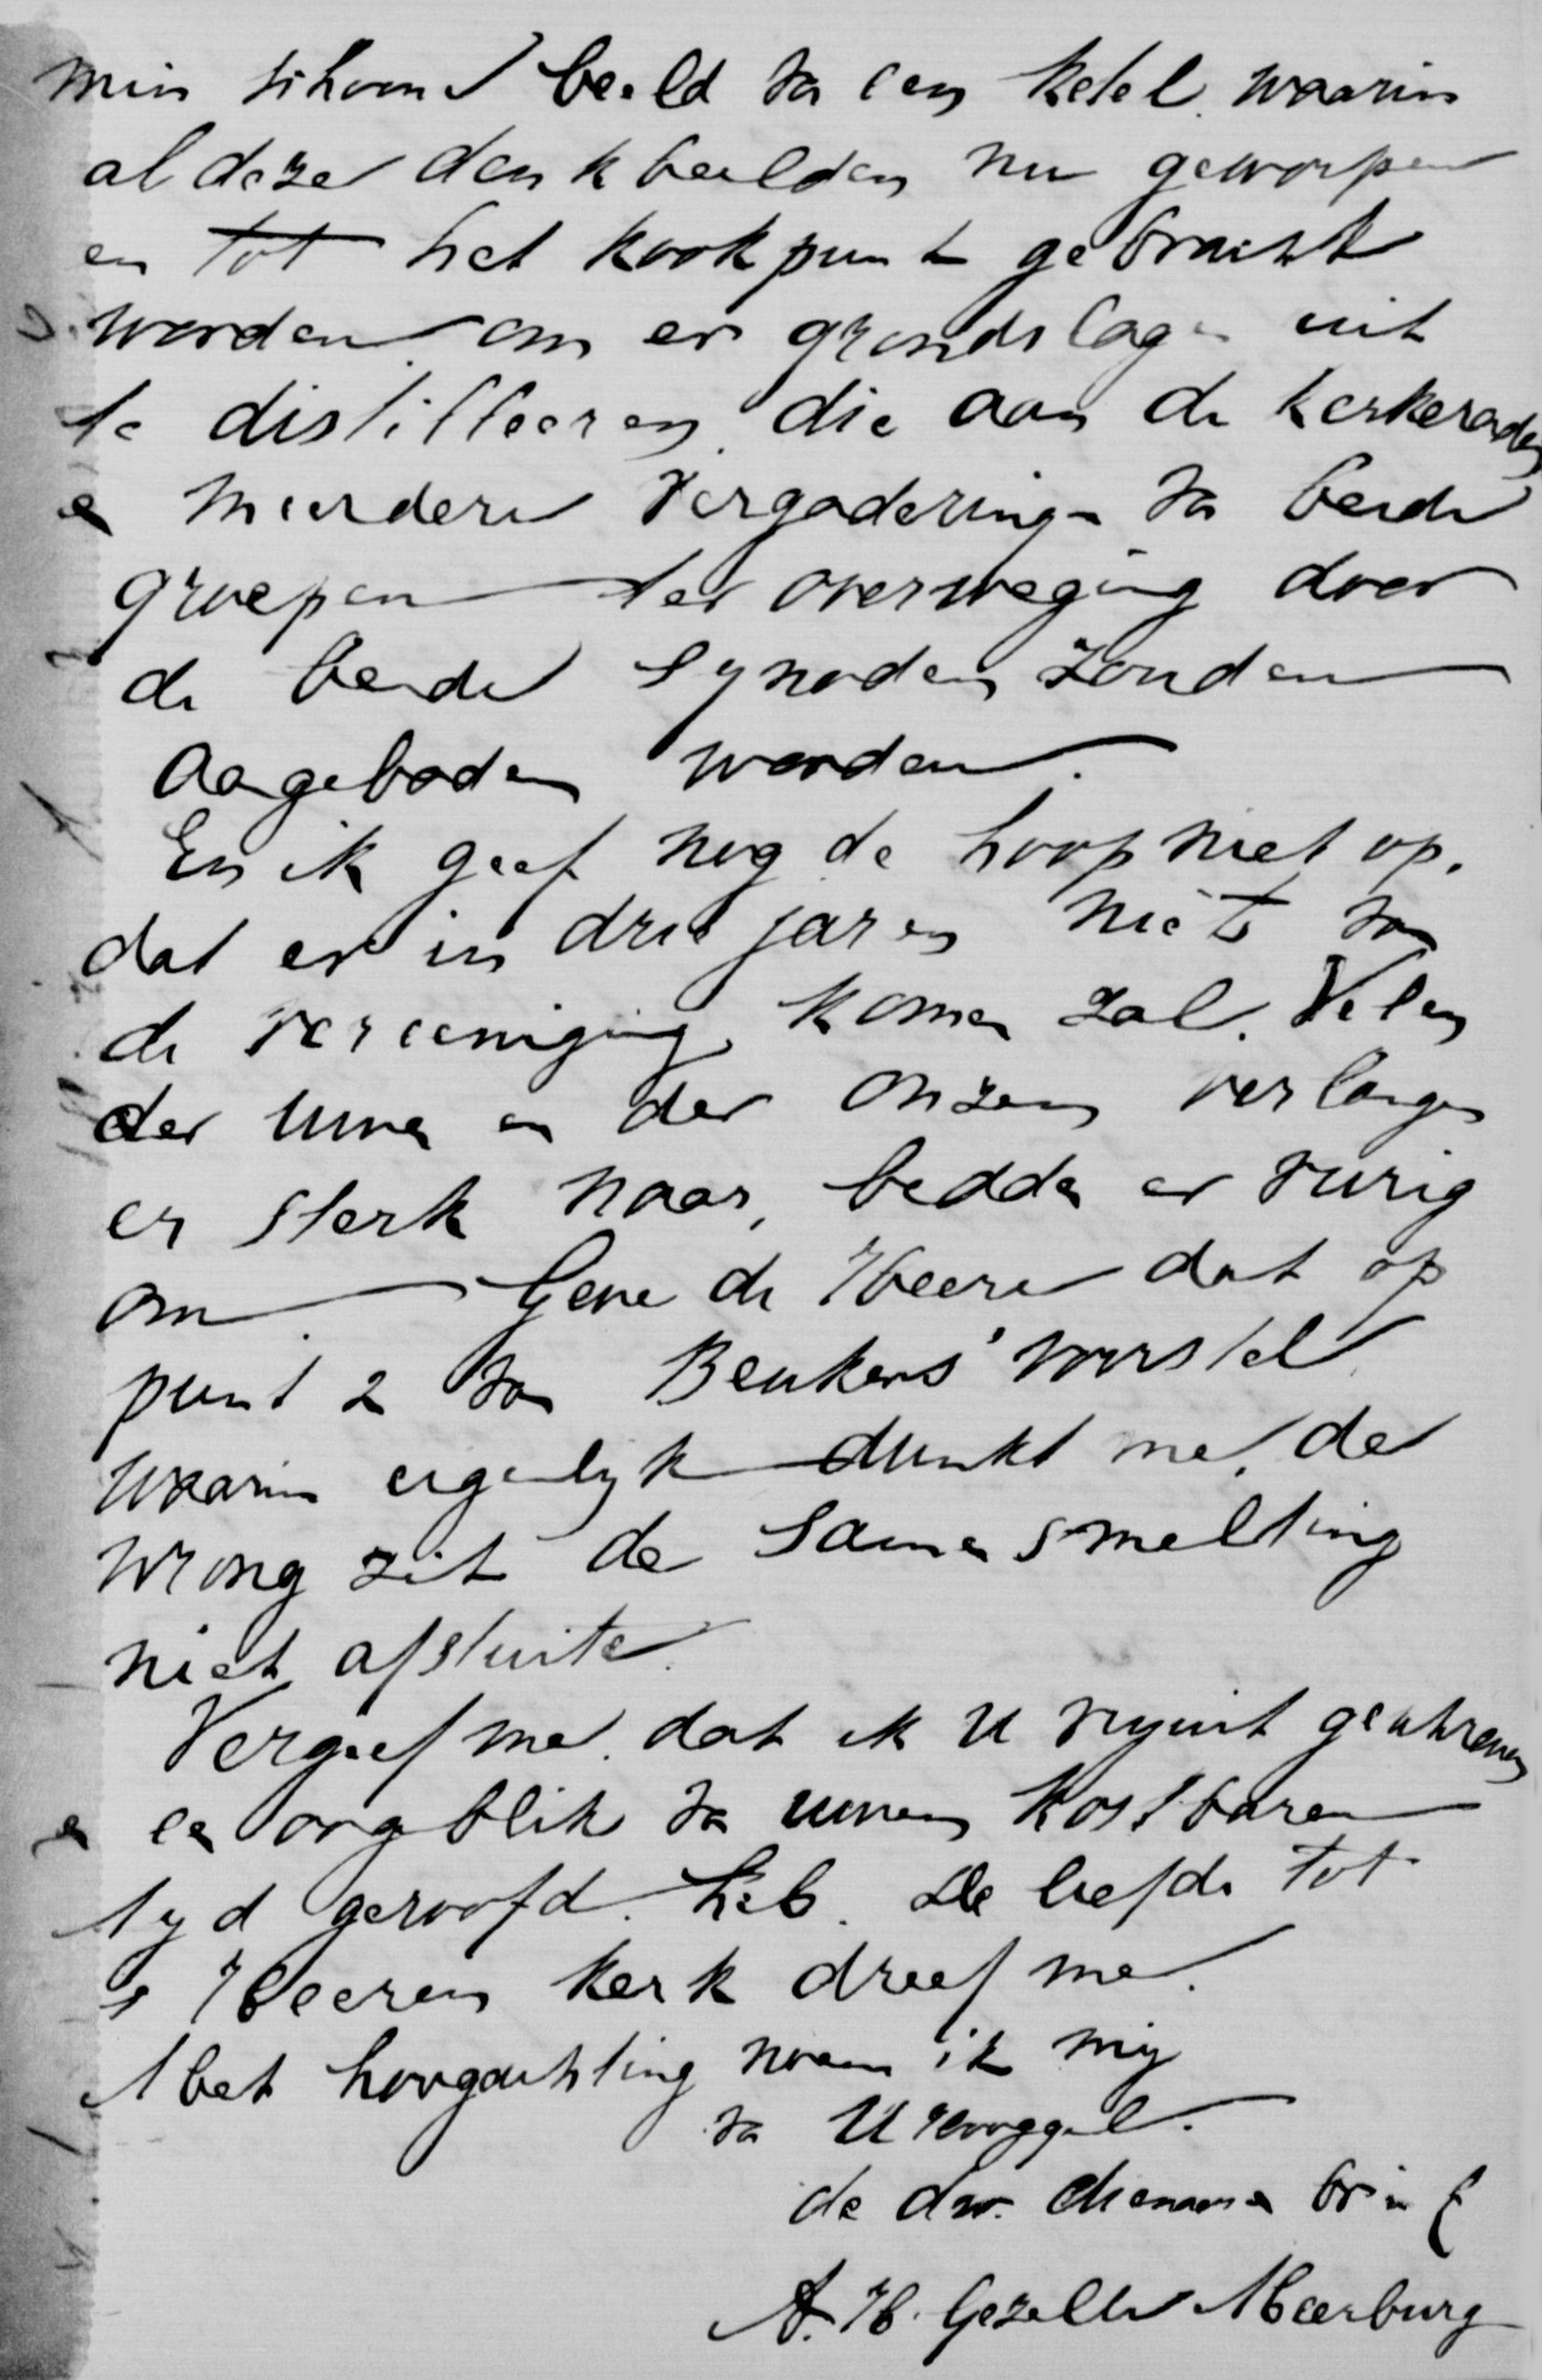 min schoone beeld va een ketel waarin
al deze denkbeelden nu geworpen
en tot het kookpunt gebracht
worden om er grondslagen uit
te distilleeren, die aan de kerkeraden
en meerdere vergaderingen va beide
groepen ter overweging door
de beide Synoden zouden
aangeboden worden.
En ik geef nog de hoop niet op,
dat er in drie jaren niets van
de vereeniging komen zal. Velen
der uwen en der onzen verlangen
er sterk naar, bedden er vurig
om. Geve de Heere dat op
punt 2 van Beukers' voorstel
waarin eigenlijk dunkt me, de
wrong zit de samensmelting
niet afstuite.
Vergeef me dat ik U vrijuit geschreven
en een oogblik va uwen kostbaren
tijd geroofd heb. De liefde tot
's Heeren kerk dreef me.
Met hoogachting noem ik mij
va U Hooggel.
de dw. dienaar en br in C
A. H. Gezelle Meerburg